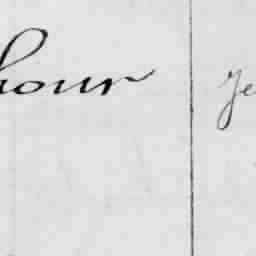 hour Je